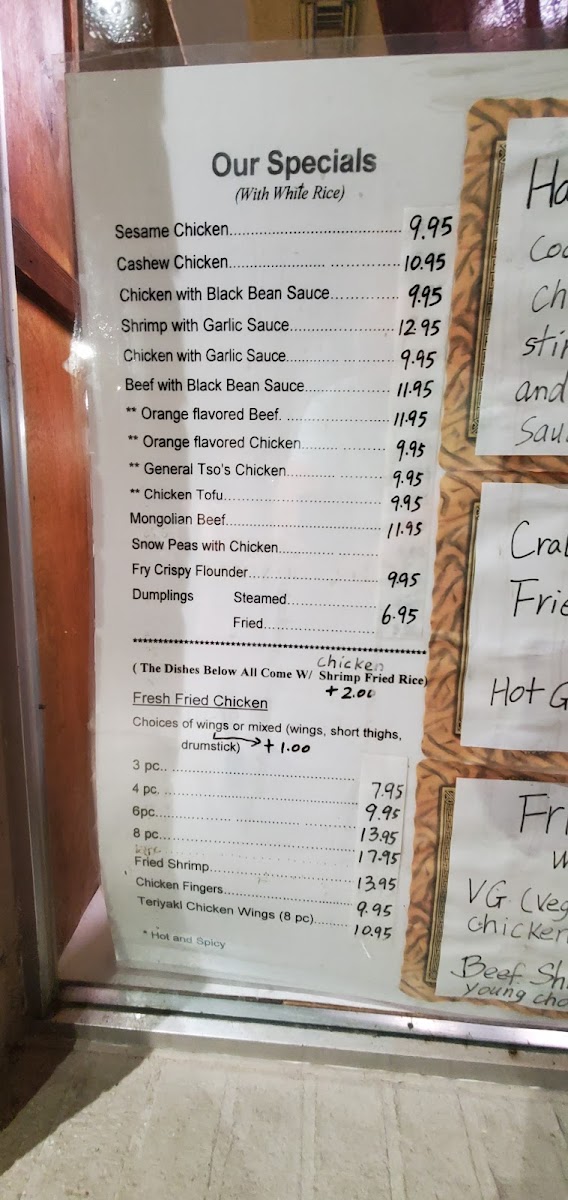 Our Specials
(With White Rice)
Sesame Chicken.................................... 9.95
Cashew Chicken.................................... 10.95
Chicken with Black Bean Sauce............. 9.95
Shrimp with Garlic Sauce...................... 12.95
Chicken with Garlic Sauce..................... 9.95
Beef with Black Bean Sauce................. 11.95
** Orange flavored Beef. ...................... 11.95
** Orange flavored Chicken.................. 9.95
** General Tso's Chicken..................... 9.95
** Chicken Tofu................................... 9.95
Mongolian Beef.................................... 11.95
Snow Peas with Chicken......................
Fry Crispy Flounder............................. 9.95
Dumplings Steamed..................... 6.95
Fried...........................
****************************************************************
chicken
( The Dishes Below All Come W/ Shrimp Fried Rice)
+2.00
Fresh Fried Chicken
Choices of wings or mixed (wings, short thighs,
drumstick) + 1.00
3 pc.. ........................................ 7.95
4 pc. ......................................... 9.95
6pc............................................ 13.95
8 pc........................................... 17.95
Fried Shrimp.................................. 13.95
Chicken Fingers............................... 9.95
Teriyaki Chicken Wings (8 pc)......... 10.95
* Hot and Spicy
Ha
Coo
Ch
stir
and
Sau
Crab
Frie
Hot G
Fri
W
VG (Veg
chicken
Beef Sh
young cho